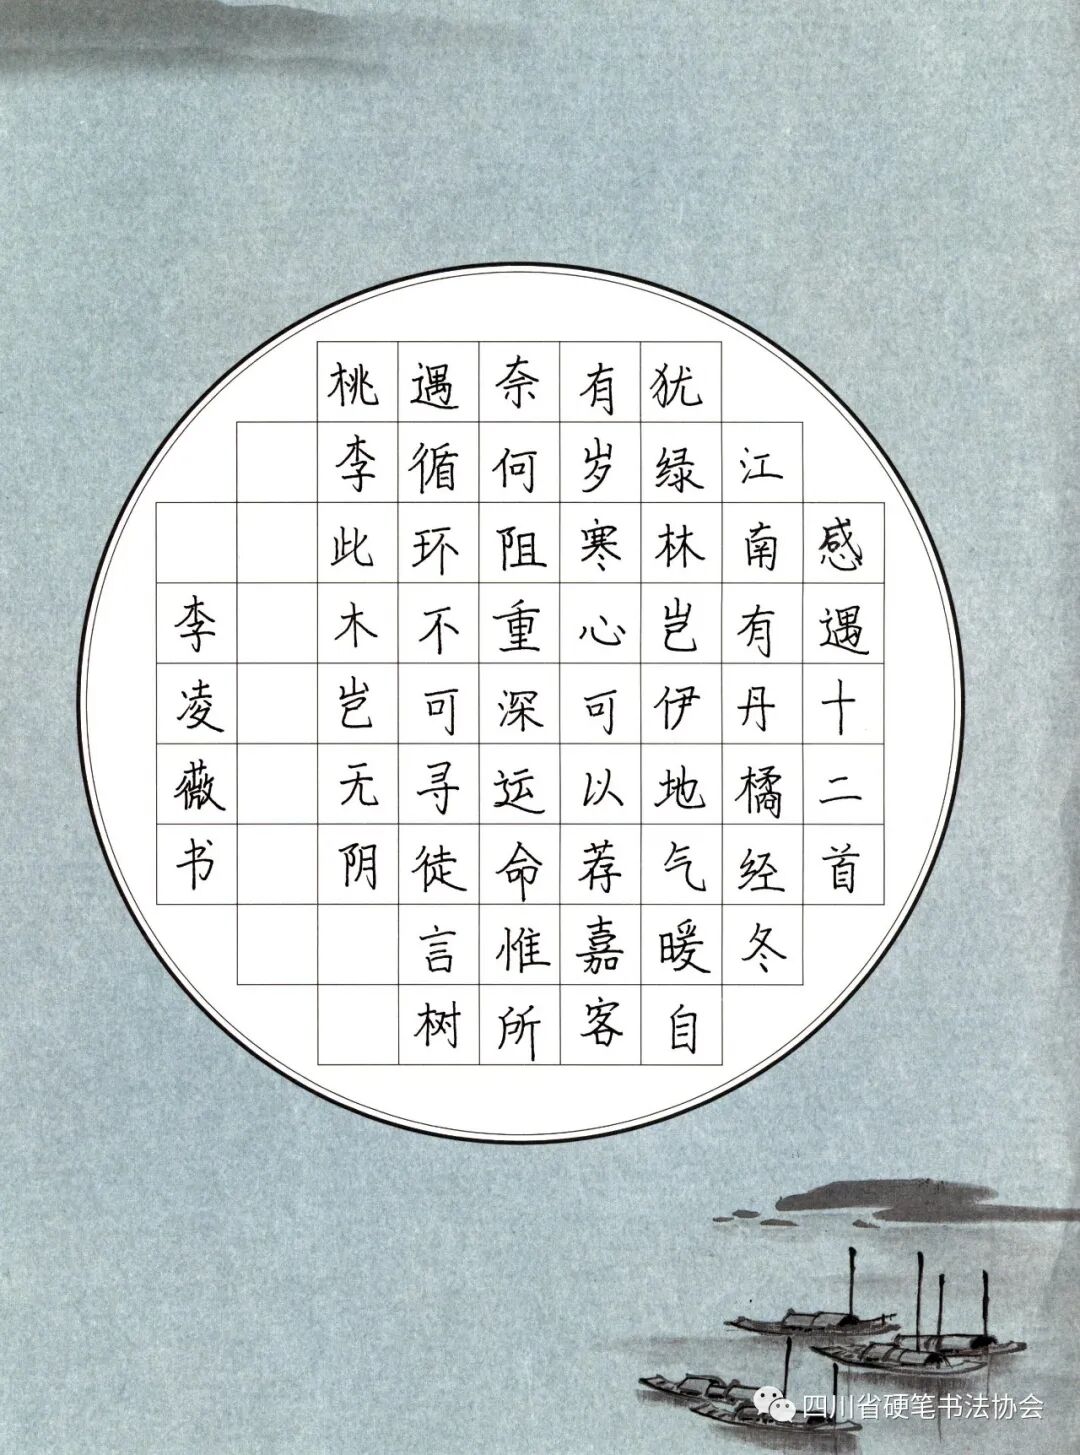 感遇十二首
江南有丹橘经冬
犹绿林岂伊地气暖自
有岁寒心可以荐嘉客
奈何阻重深运命惟所
遇循环不可寻徒言树
桃李此木岂无阴
李凌薇书
四川省硬笔书法协会